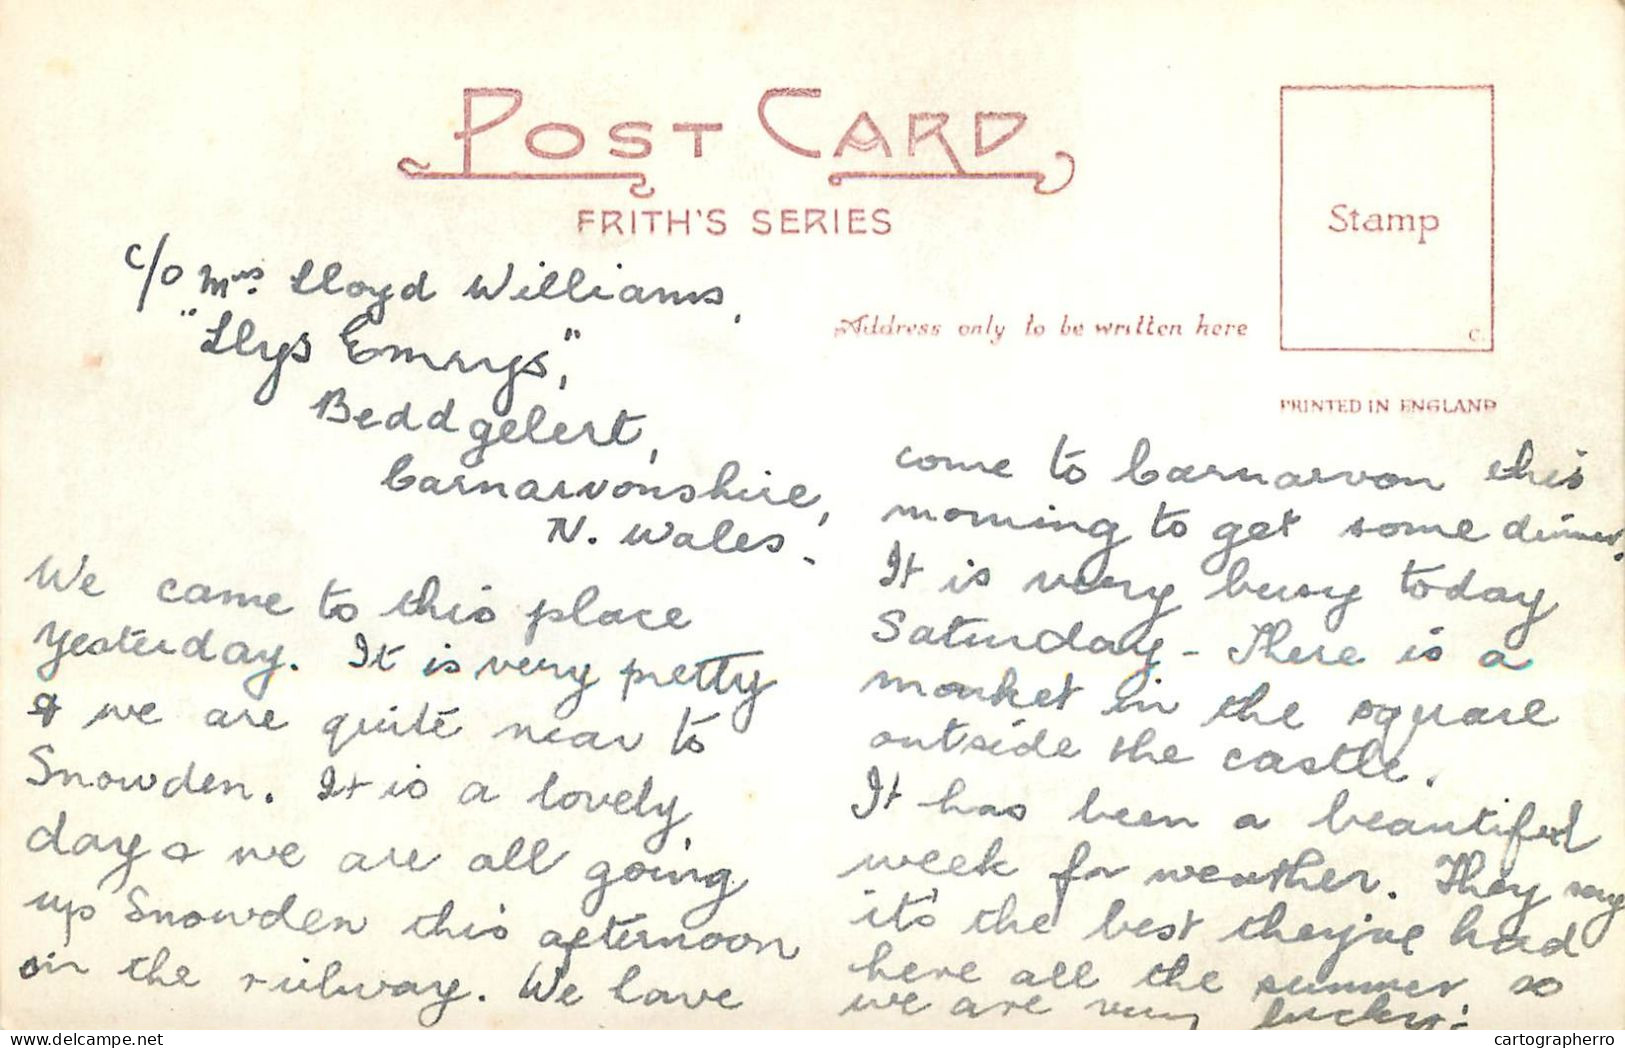 POST CARD
FRITH'S SERIES
Stamp
C.
Address only to be written here
PRINTED IN ENGLAND
c/o Mrs. Lloyd Williams,
"Llys Emrys,"
Beddgelert,
Carnarvonshire,
N. Wales.
We came to this place
yesterday. It is very pretty
& we are quite near to
Snowden. It is a lovely
day & we are all going
up Snowden this afternoon
in the railway. We have
come to Carnarvon this
morning to get some dinner.
It is very busy today
Saturday - There is a
market in the square
outside the castle.
It has been a beautiful
week for weather. They say
it's the best they've had
here all the summer so
we are very lucky.
delcampe.net
cartographerro